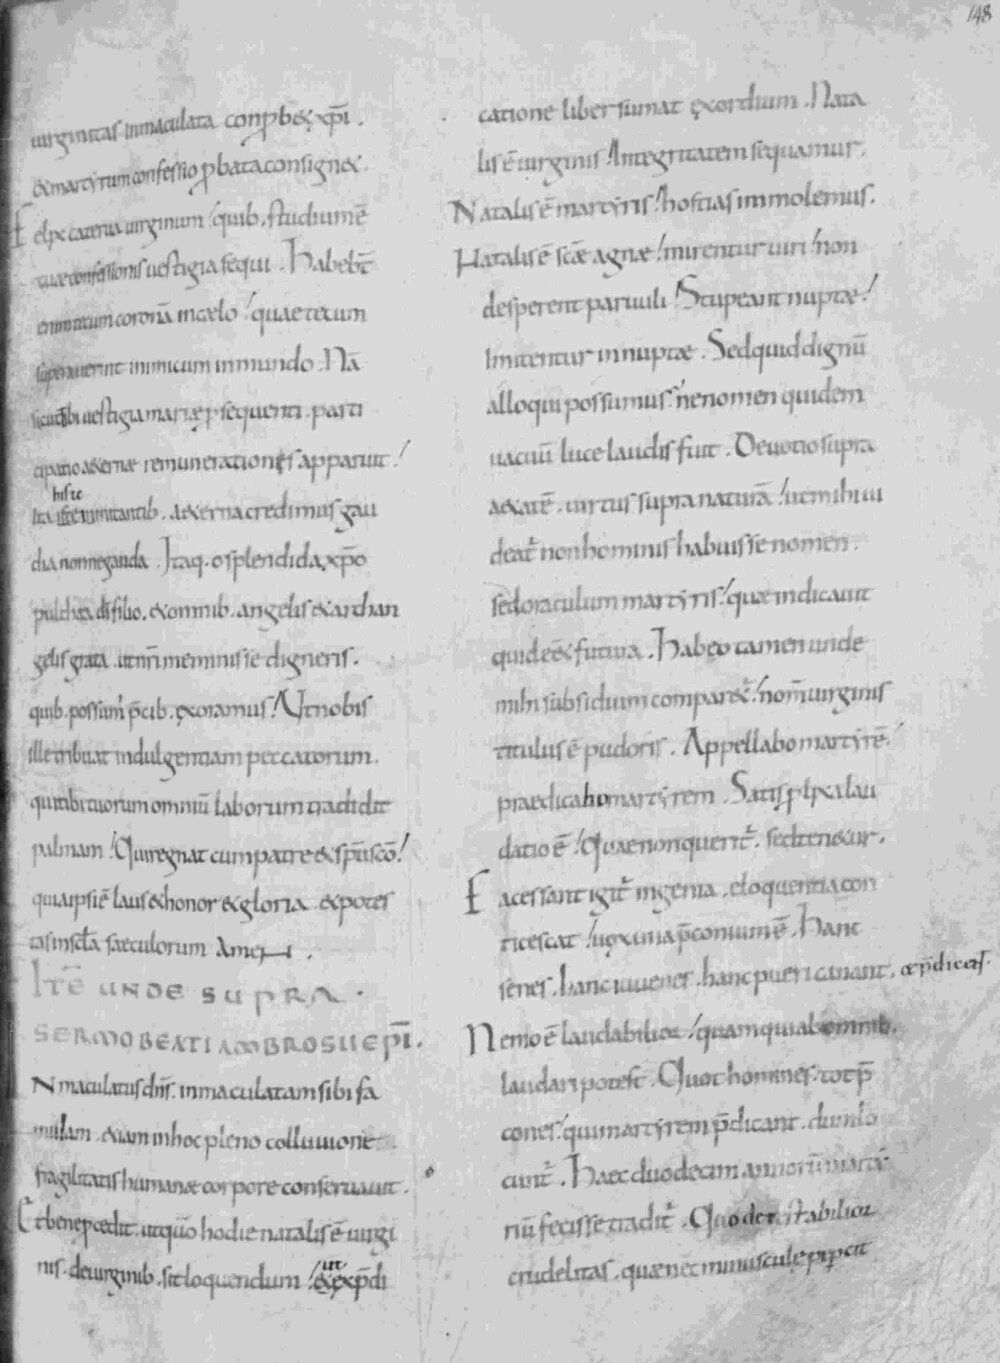 148
uirginitas inmaculata conp̱bex xp̄i .
& martyrum confessio p̱bata consign& .
Felix caterua uirginum / quib . studium ē
tuae confessionis uestigia sequi . Habeb̄t
enim tecum coronā in caelo / quae tecum
superauerint inimicum in mundo . Nā
sicut tibi uestigia mariae p̱sequenti . parti
cipatio aeternae remunerationis apparuit /
Ita his te imitantib . aeterna credimus gau
dia non neganda . Itaq . o splendida xp̄o
pulchra dī filio . & omnib . angelis & archan
gelis grata . ut nr̄i meminisse digneris .
quib . possum p̄cib . exoramus / Ut nobis
ille tribuat indulgentiam peccatorum .
qui tibi tuorum omniū laborum tradidit
palmam / Qui regnat cum patre & sp̄u sc̄o /
quia ipsi ē laus & honor & gloria . & potes
tas in scl̄a saeculorum Amen .
ITĒ UNDE SUPRA .
SERMO BEATI AMBROSII EP̄I .
Nmaculatus dn̄s . inmaculatam sibi fa
mulam . etiam in hoc pleno colluuione
fragilitatis humanae corpore conseruauit .
Et bene p̱cedit . ut quō hodie natalis ē uirgi
nis . de uirginib . sit loquendum / ut ex p̄di
catione liber sumat exordium . Nata
lis ē uirginis / Integritatem sequamur .
Natalis ē martyris / hostias immolemus .
Natalis ē scāe agnae / mirentur uiri / non
desperent paruuli / Stupeant nuptae /
Imitentur innuptae . Sed quid dignū
alloqui possumus / ne nomen quidem
uacuū luce laudis fuit . Deuotio supra
aetatē . uirtus supra naturā / ut mihi ui
deat̄ non hominis habuisse nomen .
sed oraculum martyris / quae indicauit
quid e&& futura . Habeo tamen unde
mihi subsidium comparet̄ / nom̄ uirginis
titulus ē pudoris . Appellabo martyrē /
praedicabo martyrem . Satis p̱lixa lau
datio ē / Quae non querit̄ . sed tenetur .
Facessant igit̄ ingenia . eloquentia con
ticescat / uox una p̄conium ē . Hanc
senes . hanc iuuenes . hanc pueri canant . & p̄dicent .
Nemo ē laudabilior / quam qui ab omnib .
laudari potest . Quot homines . tot p̄
cones / qui martyrem p̄dicant . dum lo
cunt̄ . Haec duodecim annorū marty
riū fecisse tradit̄ . Quo detestabilior
crudelitas . quae nec minuscule peperit